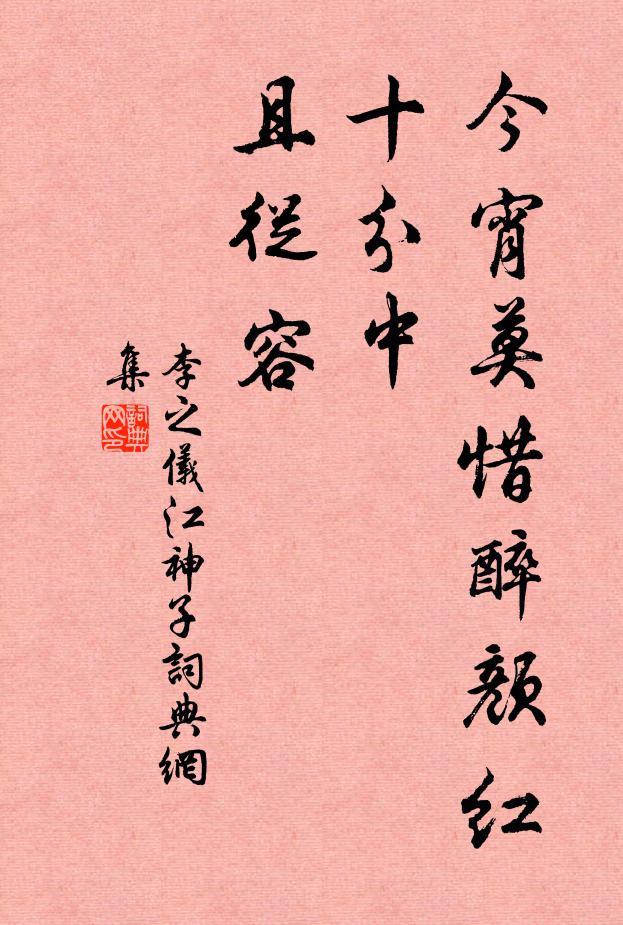 今宵莫惜醉顏紅
十分中
且從容
李之儀江神子詞典網
集
詞典網印